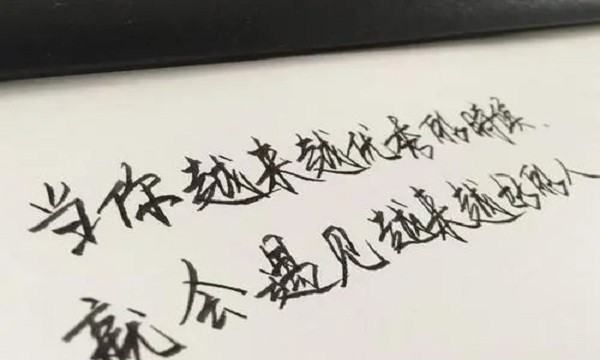 当你越来越优秀的时候、
就会遇见越来越好的人